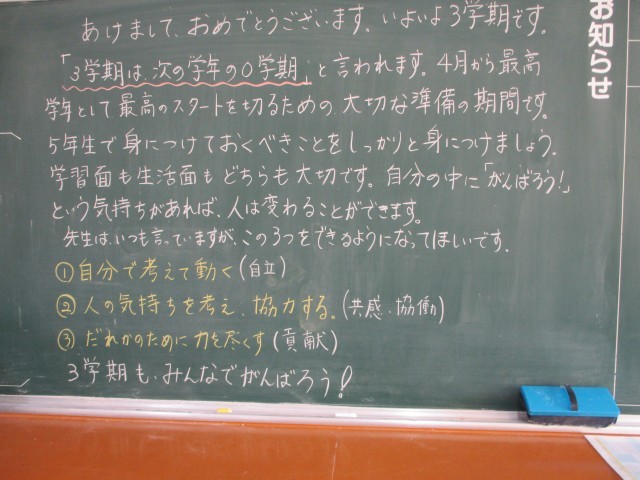 お知らせ
あけまして、おめでとうございます。いよいよ3学期です。
「3学期は、次の学年の0学期」と言われます。4月から最高
学年として最高のスタートを切るための大切な準備の期間です。
5年生で身につけておくべきことをしっかりと身につけましょう。
学習面も生活面もどちらも大切です。自分の中に「がんばろう!」
という気持ちがあれば、人は変わることができます。
先生は、いつも言っていますが、この3つをできるようになってほしいです。
①自分で考えて動く(自立)
②人の気持ちを考え、協力する。(共感・協働)
③だれかのために力を尽くす(貢献)
3学期も、みんなでがんばろう!